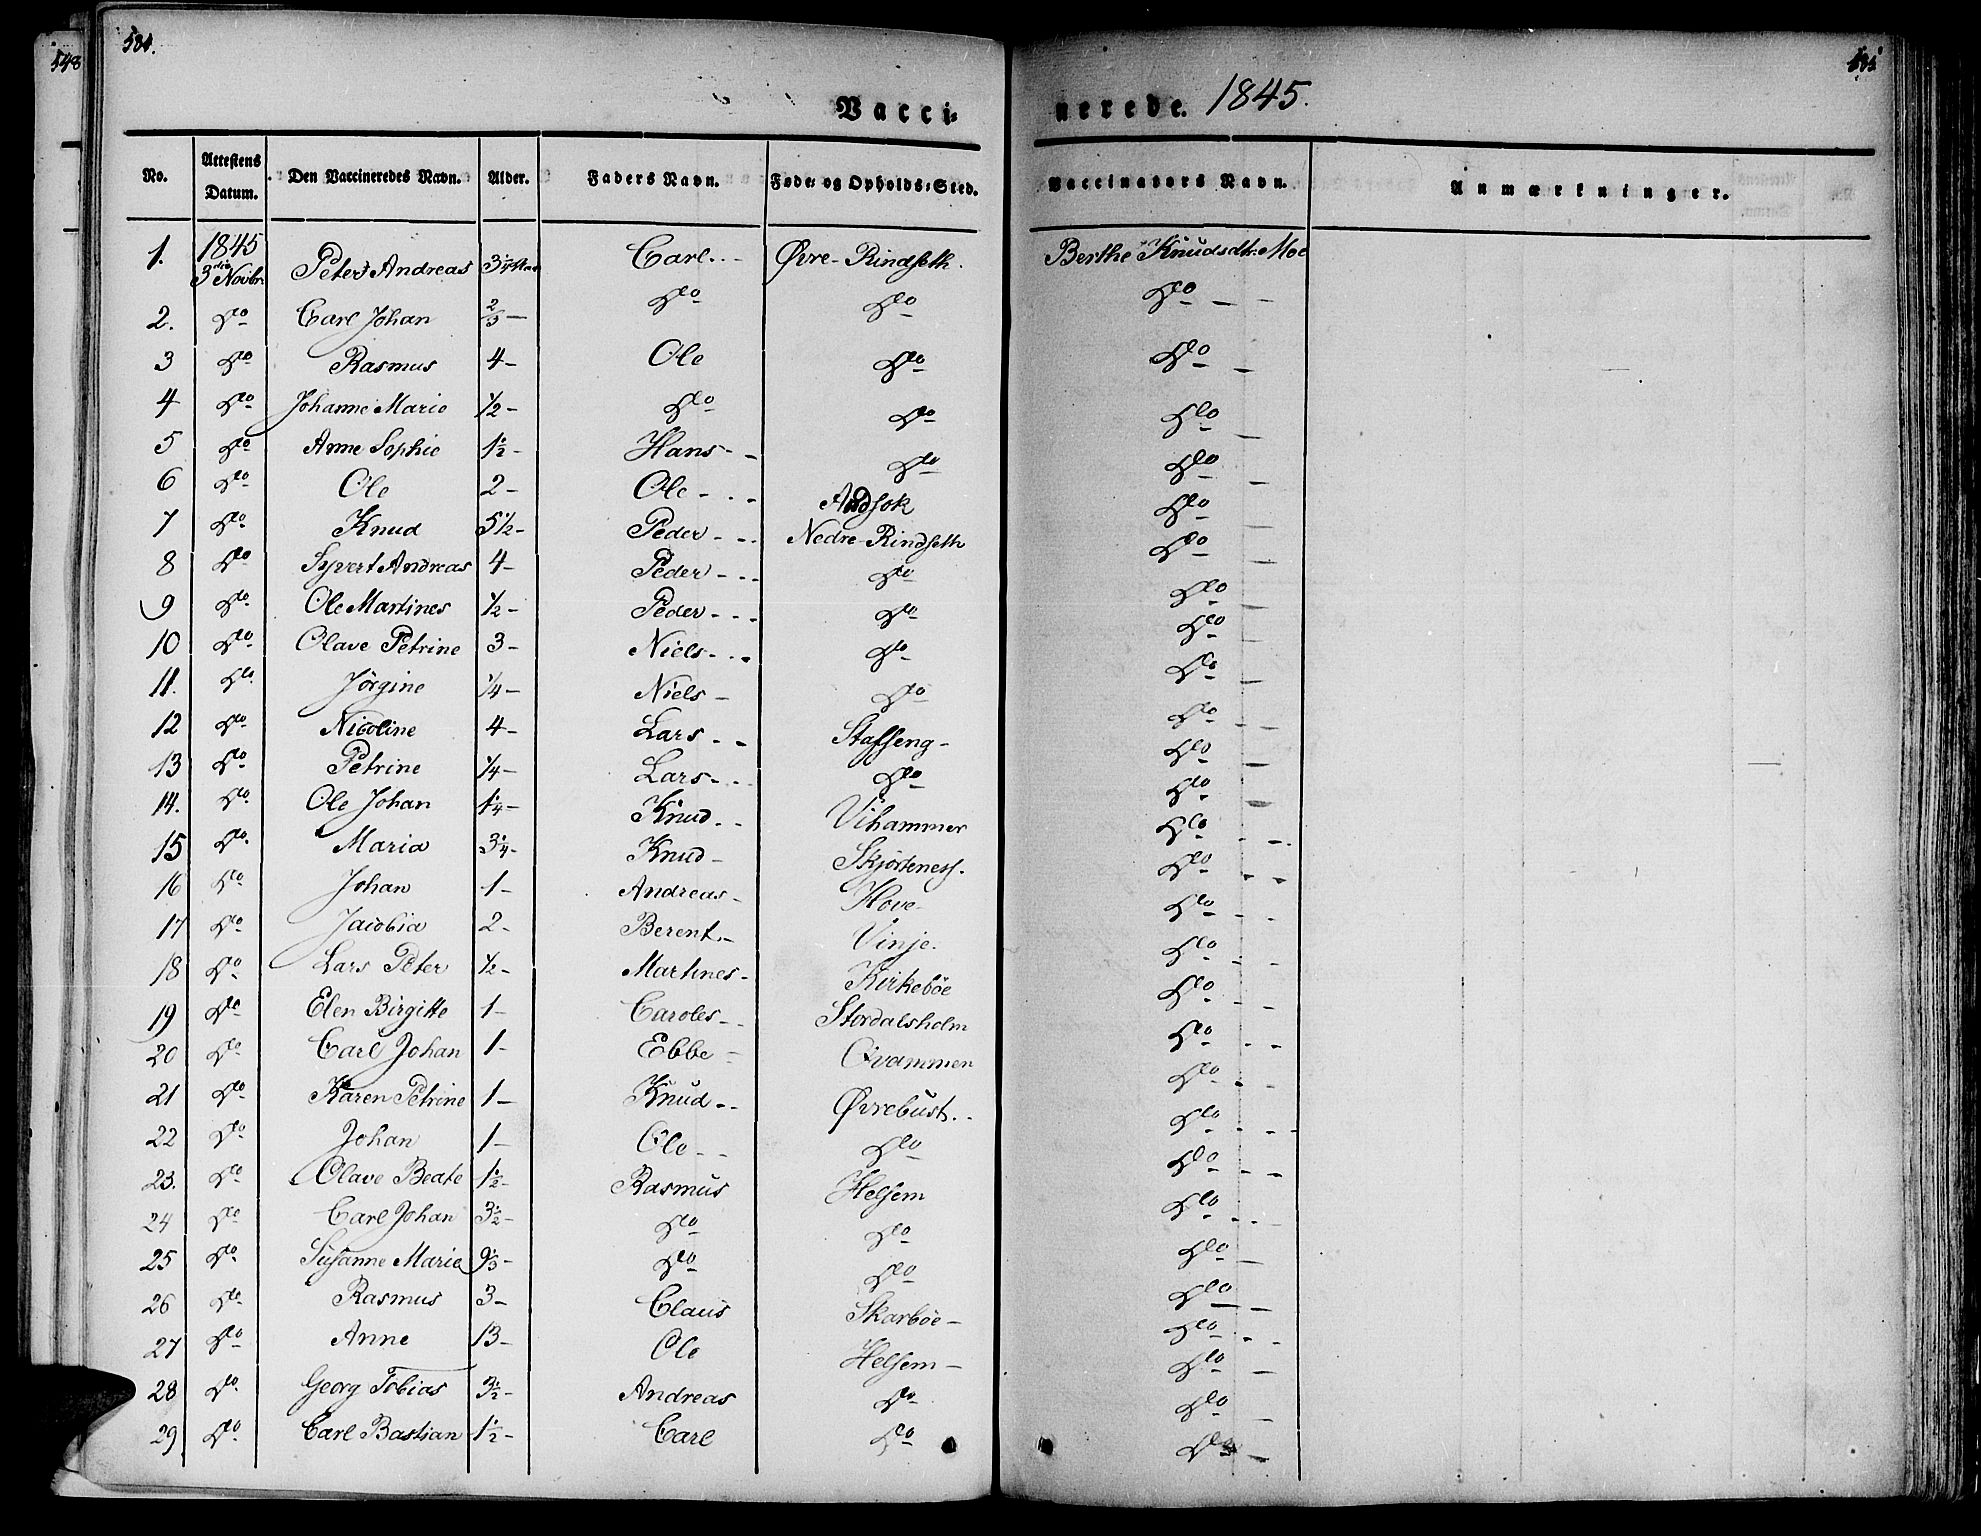 548
Vaccinerede. 1845.
No. Attestens Datum. Den Vaccineredes Navn. Alder. Faders Navn. Føde- og Opholds-Sted. Vaccinators Navn. Anmærkninger.
1. 1845 3die Novbr. Peter Andreas Carl Øvre-Rindseth. Berthe Knudsdtr. Moe
2. Do Carl Johan 2/3 Do Do Do
3 Do Rasmus 4 Ole Do Do
4 Do Johanne Marie 1/2 Do Do Do
5 Do Anne Sophie 1 1/2 Hans Do Do
6 Do Ole 2 Ole Do
7 Do Knud 5 1/2 Peder Nedre-Rindseth Do
8 Do Syvert Andreas 4 Peder Do Do
9 Do Ole Martines 1/2 Peder Do Do
10 Do Olave Petrine 3 Niels Do Do
11. Do Jørgine 1/4 Niels Do Do
12 Do Nicoline 4 Lars Stafseng Do
13 Do Petrine 1/4 Lars Do Do
14. Do Ole Johan 1 1/4 Knud Vihammer Do
15 Do Maria 3 1/4 Knud Skjorteness. Do
16 Do Johan 1 Andreas Hove Do
17 Do Jacobia 2 Berent Vinje. Do
18 Do Lars Peter 1/2 Martines Kirkebøe Do
19 Do Elen Birgitte 1 Caroles Stordalsholm Do
20 Do Carl Johan 1 Ebbe Qvammen Do
21 Do Karen Petrine 1 Knud Øvrebust Do
22 Do Johan 1 Ole Do Do
23. Do Olave Beate 1 1/2 Rasmus Helsem Do
24 Do Carl Johan 3 1/2 Do Do Do
25 Do Susanne Marie 9 1/3 Do Do Do
26 Do Rasmus 3 Claus Skarbøe Do
27 Do Anne 13 Ole Helsem Do
28 Do Georg Tobias 3 1/2 Andreas Do Do
29 Do Carl Bastian 1 1/2 Carl Do Do